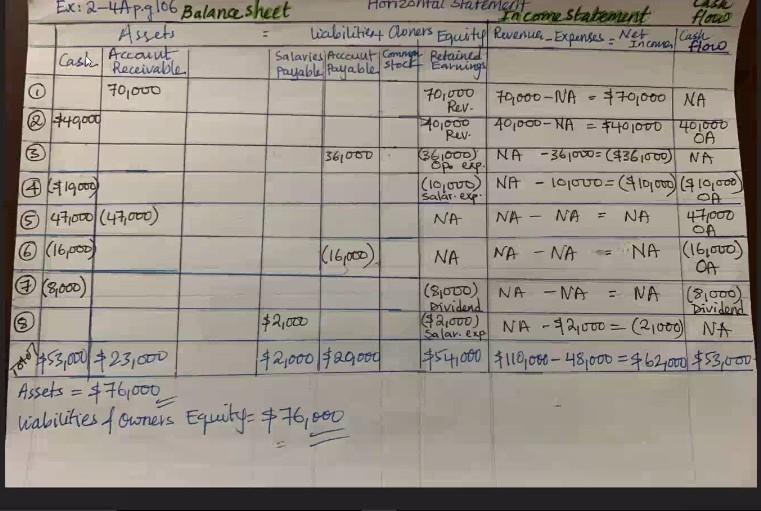 Ex: 2-4A p.g 106 Balance sheet Horizontal Statement Income statement Cash flow
Assets = Liabilities + Owners Equity Revenue - Expenses = Net Income Cash flow
Cash Account Receivable Salaries Payable Account Payable Common stock Retained Earnings
① 70,000 70,000 Rev. 70,000 - NA = $70,000 NA
② $40,000 40,000 Rev. 40,000 - NA = $40,000 40,000 OA
③ 36,000 (36,000) Op. exp. NA - 36,000 = ($36,000) NA
④ ($10,000) (10,000) Salar. exp. NA - 10,000 = ($10,000) ($10,000) OA
⑤ 47,000 (47,000) NA NA - NA = NA 47,000 OA
⑥ (16,000) (16,000) NA NA - NA = NA (16,000) OA
⑦ (8,000) (8,000) Dividend NA - NA = NA (8,000) Dividend
⑧ $2,000 ($2,000) Salar. exp NA - $2,000 = (2,000) NA
Total $53,000 $23,000 $2,000 $20,000 $54,000 $110,000 - 48,000 = $62,000 $53,000
Assets = $76,000
Liabilities & Owners Equity = $76,000